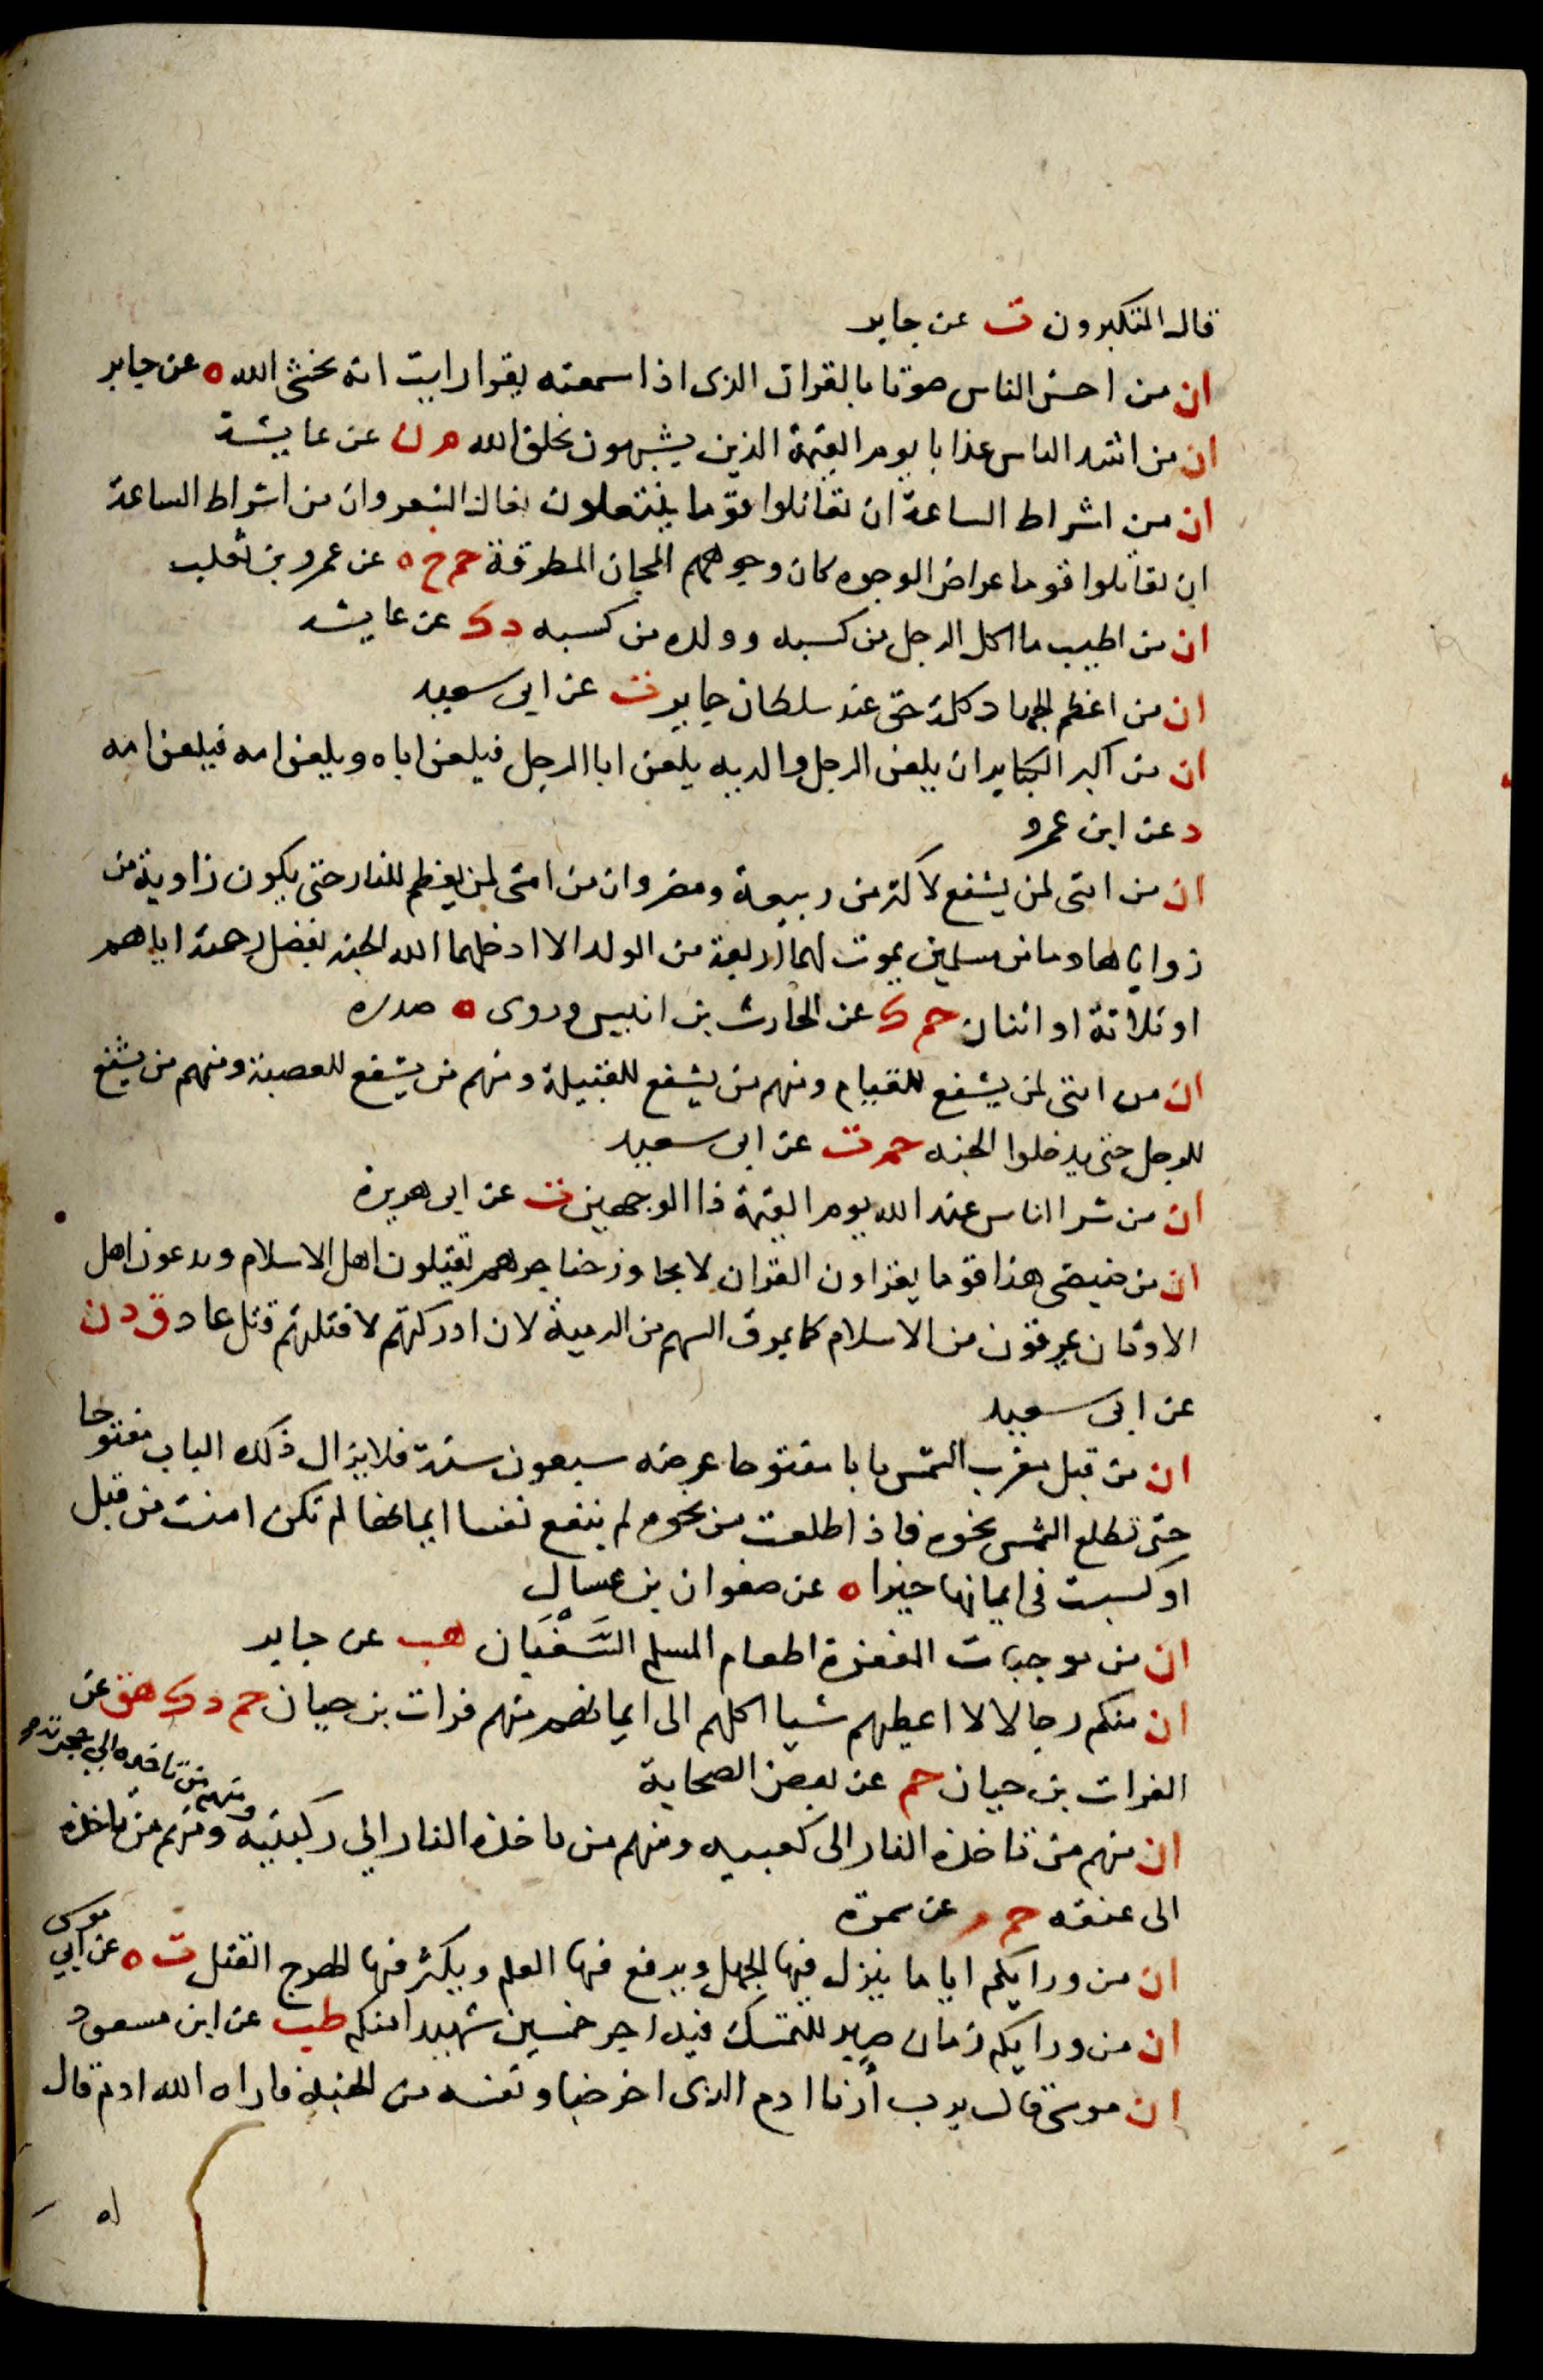 قال المتكبرون ت عن جابر
ان من احسن الناس صوتا بالقران الذى اذا سمعته يقرا رايت انه يخشى الله ه عن جابر
ان من اشد الناس عذابا يوم القيمة الذين يشبهون بخلق الله م ن عن عايشة
ان من اشراط الساعة ان تقاتلوا قوما ينتعلون نعال الشعر وان من اشراط الساعة
ان تقاتلوا قوما عراض الوجوه كان وجوههم المجان المطرقة حم خ ه عن عمرو بن تغلب
ان من اطيب ما اكل الرجل من كسبه وولده من كسبه د ك عن عايشه
ان من اعظم الجهاد كلمة حق عند سلطان جاير ت عن ابى سعيد
ان من اكبر الكباير ان يلعن الرجل والديه يلعن ابا الرجل فيلعن اباه ويلعن امه فيلعن امه
د عن ابن عمرو
ان من امتى لمن يشفع لاكثر من ربيعة ومضر وان من امتى لمن يعظم للنار حتى يكون زاوية من
زواياها وما من مسلمين يموت لهما اربعة من الولد الا ادخلهما الله الجنه بفضل رحمة اياهم
او ثلاثة او اثنان حم ك عن الحارث بن اقيس وروى ه صدره
ان من امتى لمن يشفع للفيام ومنهم من يشفع للقبيلة ومنهم من يشفع للعصبة ومنهم من يشفع
للرجل حتى يدخلوا الجنه حم ت عن ابى سعيد
ان من شر الناس عند الله يوم القيمة ذا الوجهين ت عن ابى هريرة
ان من ضيضى هذا قوما يقراون القران لا يجاوز حناجرهم يقتلون اهل الاسلام ويدعون اهل
الاوثان يمرقون من الاسلام كما يمرق السهم من الرمية لان ادركتهم لاقتلنهم قتل عاد ق د ن
عن ابى سعيد
ان من قبل مغرب الشمس بابا مفتوحا عرضه سبعون سنة فلا يزال ذلك الباب مفتوحا
حتى تطلع الشمس نحوه فاذا طلعت من نحوه لم ينفع نفسا ايمانها لم تكن امنت من قبل
او كسبت فى ايمانها خيرا ه عن صفوان بن عسال
ان من موجبات المغفرة اطعام المسلم السَّغْبَان هب عن جابر
ان منكم رجالا لا اعطيهم شيا اكلهم الى ايمانهم منهم فرات بن حيان حم د ك هق عن
الفرات بن حيان حم عن بعض الصحابة
ان منهم من تاخذه النار الى كعبيه ومنهم من تاخذه النار الى ركبتيه ومنهم من تاخذه الى حجزته ومنهم من تاخذه
الى عنقه حم م عن سمرة
ان من ورايكم اياما ينزل فيها الجهل ويرفع فيها العلم ويكثر فيها الهرج القتل ت ه عن ابي موسى
ان من ورايكم زمان صبر للمتمسك فيه اجر خمسين شهيدا منكم طب عن ابن مسعود
ان موسى قال يرب أرنا ادم الذى اخرجنا ونفسه من الجنة فاراه الله ادم قال